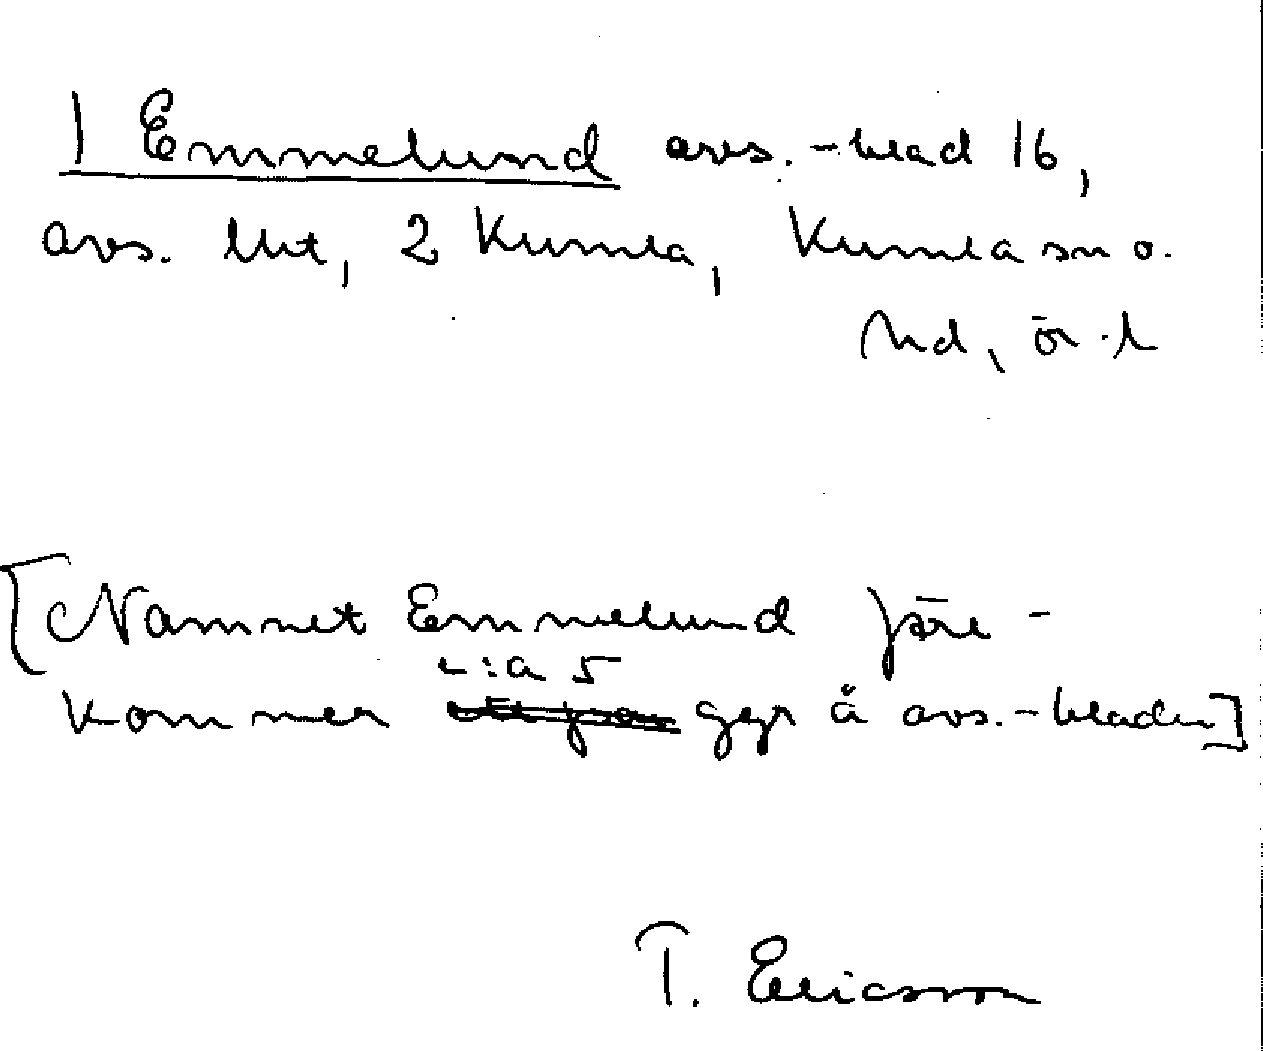 1 Emmelund avs.-blad 16,
avs. Utt, 2 Kumla, Kumla sn o.
hd, ör. l
[Namnet Emmelund före-
c:a 5
kommer ggr å avs.-bladen]
T. Ericsson